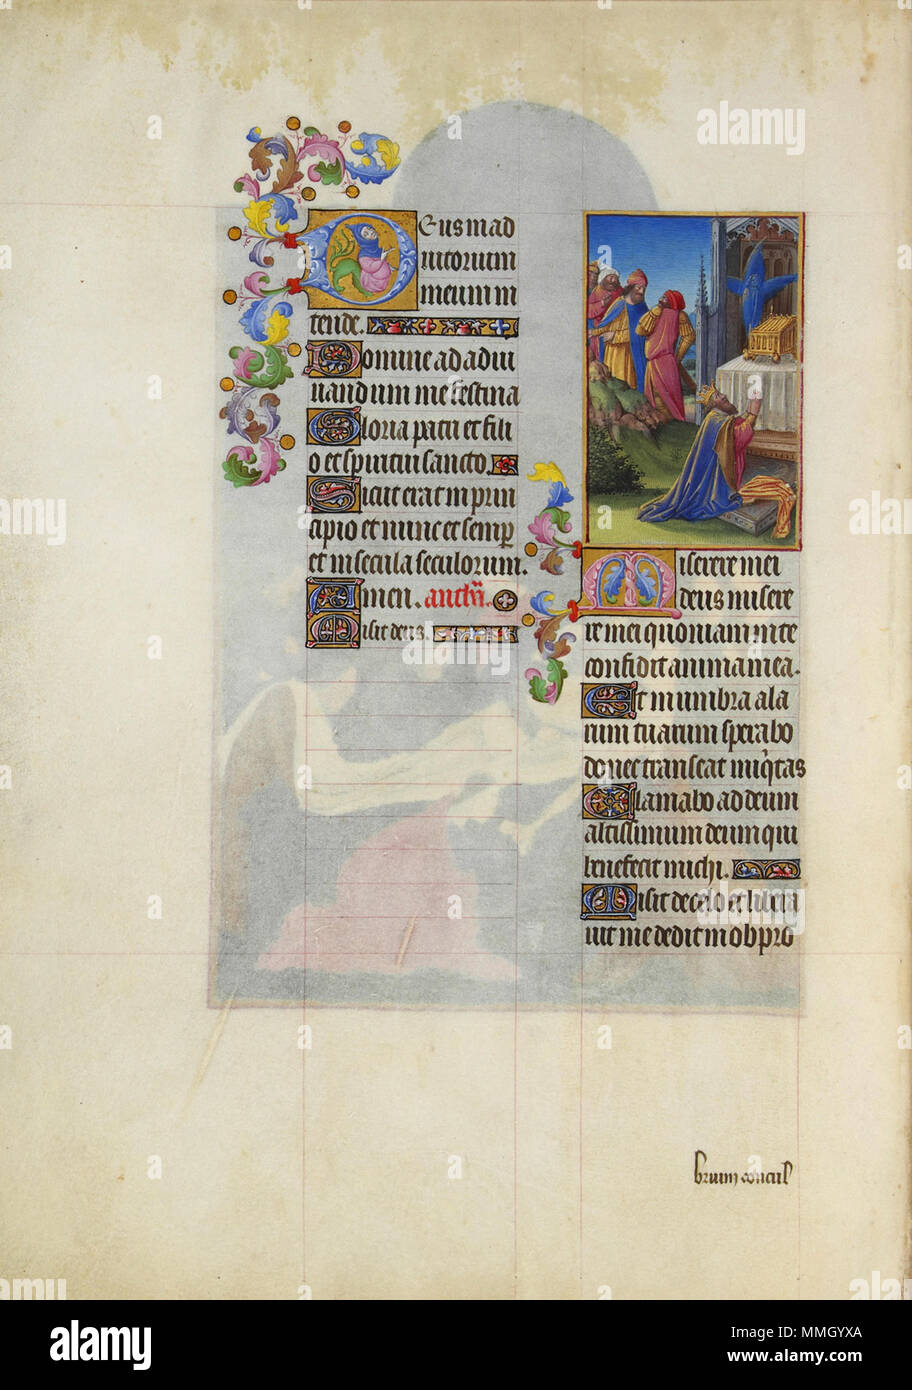 Deus in ad
iutorium
meum in
tende.
Domine ad adiu
uandum me festina
Gloria patri et fili
o et spiritui sancto.
Sicut erat in prin
cipio et nunc et semp
et in secula seculorum.
Amen. anth̃.
Misit deus.
Miserere mei
deus misere
re mei quoniam in te
confidit anima mea.
Et in umbra ala
rum tuarum sperabo
donec transeat iniq̃tas
Clamabo ad deum
altissimum deum qui
benefecit michi.
Misit de celo et libera
uit me dedit in obpro
brium concul
a alamy
Image ID: MMGYXA
www.alamy.com